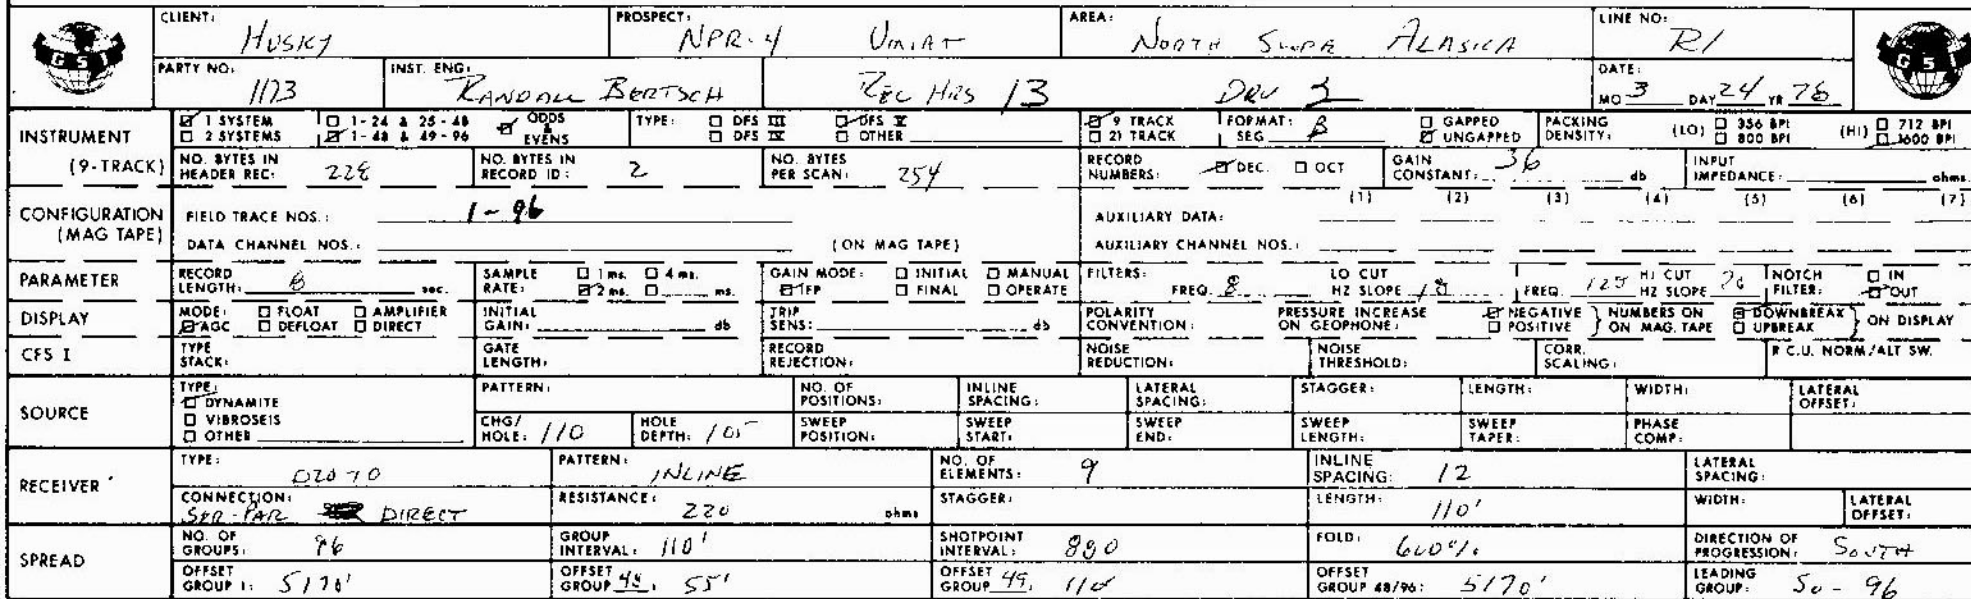 CLIENT: HUSKY PROSPECT: NPR-4 UMIAT AREA: NORTH SLOPE ALASKA LINE NO: R1
GSI GSI
PARTY NO: 1173 INST. ENG: RANDALL BERTSCH REC HRS 13 DRV 3 DATE: MO 3 DAY 24 YR 76
INSTRUMENT (9-TRACK) 1 SYSTEM 2 SYSTEMS 1-24 & 25-48 1-48 & 49-96 ODDS & EVENS TYPE: DFS III DFS IV DFS V OTHER 9 TRACK 21 TRACK FORMAT: SEG B GAPPED UNGAPPED PACKING DENSITY: (LO) 356 BPI 800 BPI (HI) 712 BPI 1600 BPI
NO. BYTES IN HEADER REC: 228 NO. BYTES IN RECORD ID: 2 NO. BYTES PER SCAN: 254 RECORD NUMBERS: DEC. OCT GAIN CONSTANT: 36 db INPUT IMPEDANCE: ohms
CONFIGURATION (MAG TAPE) FIELD TRACE NOS.: 1-96 AUXILIARY DATA: (1) (2) (3) (4) (5) (6) (7)
DATA CHANNEL NOS.: (ON MAG TAPE) AUXILIARY CHANNEL NOS.:
PARAMETER RECORD LENGTH: 6 sec. SAMPLE RATE: 1 ms. 4 ms. 2 ms. ms. GAIN MODE: INITIAL MANUAL IFP FINAL OPERATE FILTERS: FREQ. 8 LO CUT HZ SLOPE 18 FREQ. 125 HI CUT HZ SLOPE NOTCH FILTER: IN OUT
DISPLAY MODE: FLOAT AMPLIFIER AGC DEFLOAT DIRECT INITIAL GAIN: db TRIP SENS: db POLARITY CONVENTION: PRESSURE INCREASE ON GEOPHONE: NEGATIVE POSITIVE NUMBERS ON ON MAG. TAPE DOWNBREAK UPBREAK ON DISPLAY
CFS I TYPE STACK: GATE LENGTH: RECORD REJECTION: NOISE REDUCTION: NOISE THRESHOLD: CORR. SCALING: R C.U. NORM/ALT SW.
SOURCE TYPE: DYNAMITE VIBROSEIS OTHER PATTERN: NO. OF POSITIONS: INLINE SPACING: LATERAL SPACING: STAGGER: LENGTH: WIDTH: LATERAL OFFSET:
CHG/HOLE: 110 HOLE DEPTH: 105 SWEEP POSITION: SWEEP START: SWEEP END: SWEEP LENGTH: SWEEP TAPER: PHASE COMP:
RECEIVER TYPE: PATTERN: INLINE NO. OF ELEMENTS: 9 INLINE SPACING: 12 LATERAL SPACING:
CONNECTION: SER-PAR DIRECT RESISTANCE: 220 ohms STAGGER: LENGTH: 110' WIDTH: LATERAL OFFSET:
SPREAD NO. OF GROUPS: 96 GROUP INTERVAL: 110' SHOTPOINT INTERVAL: 880 FOLD: 600% DIRECTION OF PROGRESSION: SOUTH
OFFSET GROUP 1: 5170' OFFSET GROUP 48: 55' OFFSET GROUP 49: 110 OFFSET GROUP 48/96: 5170' LEADING GROUP: So - 96